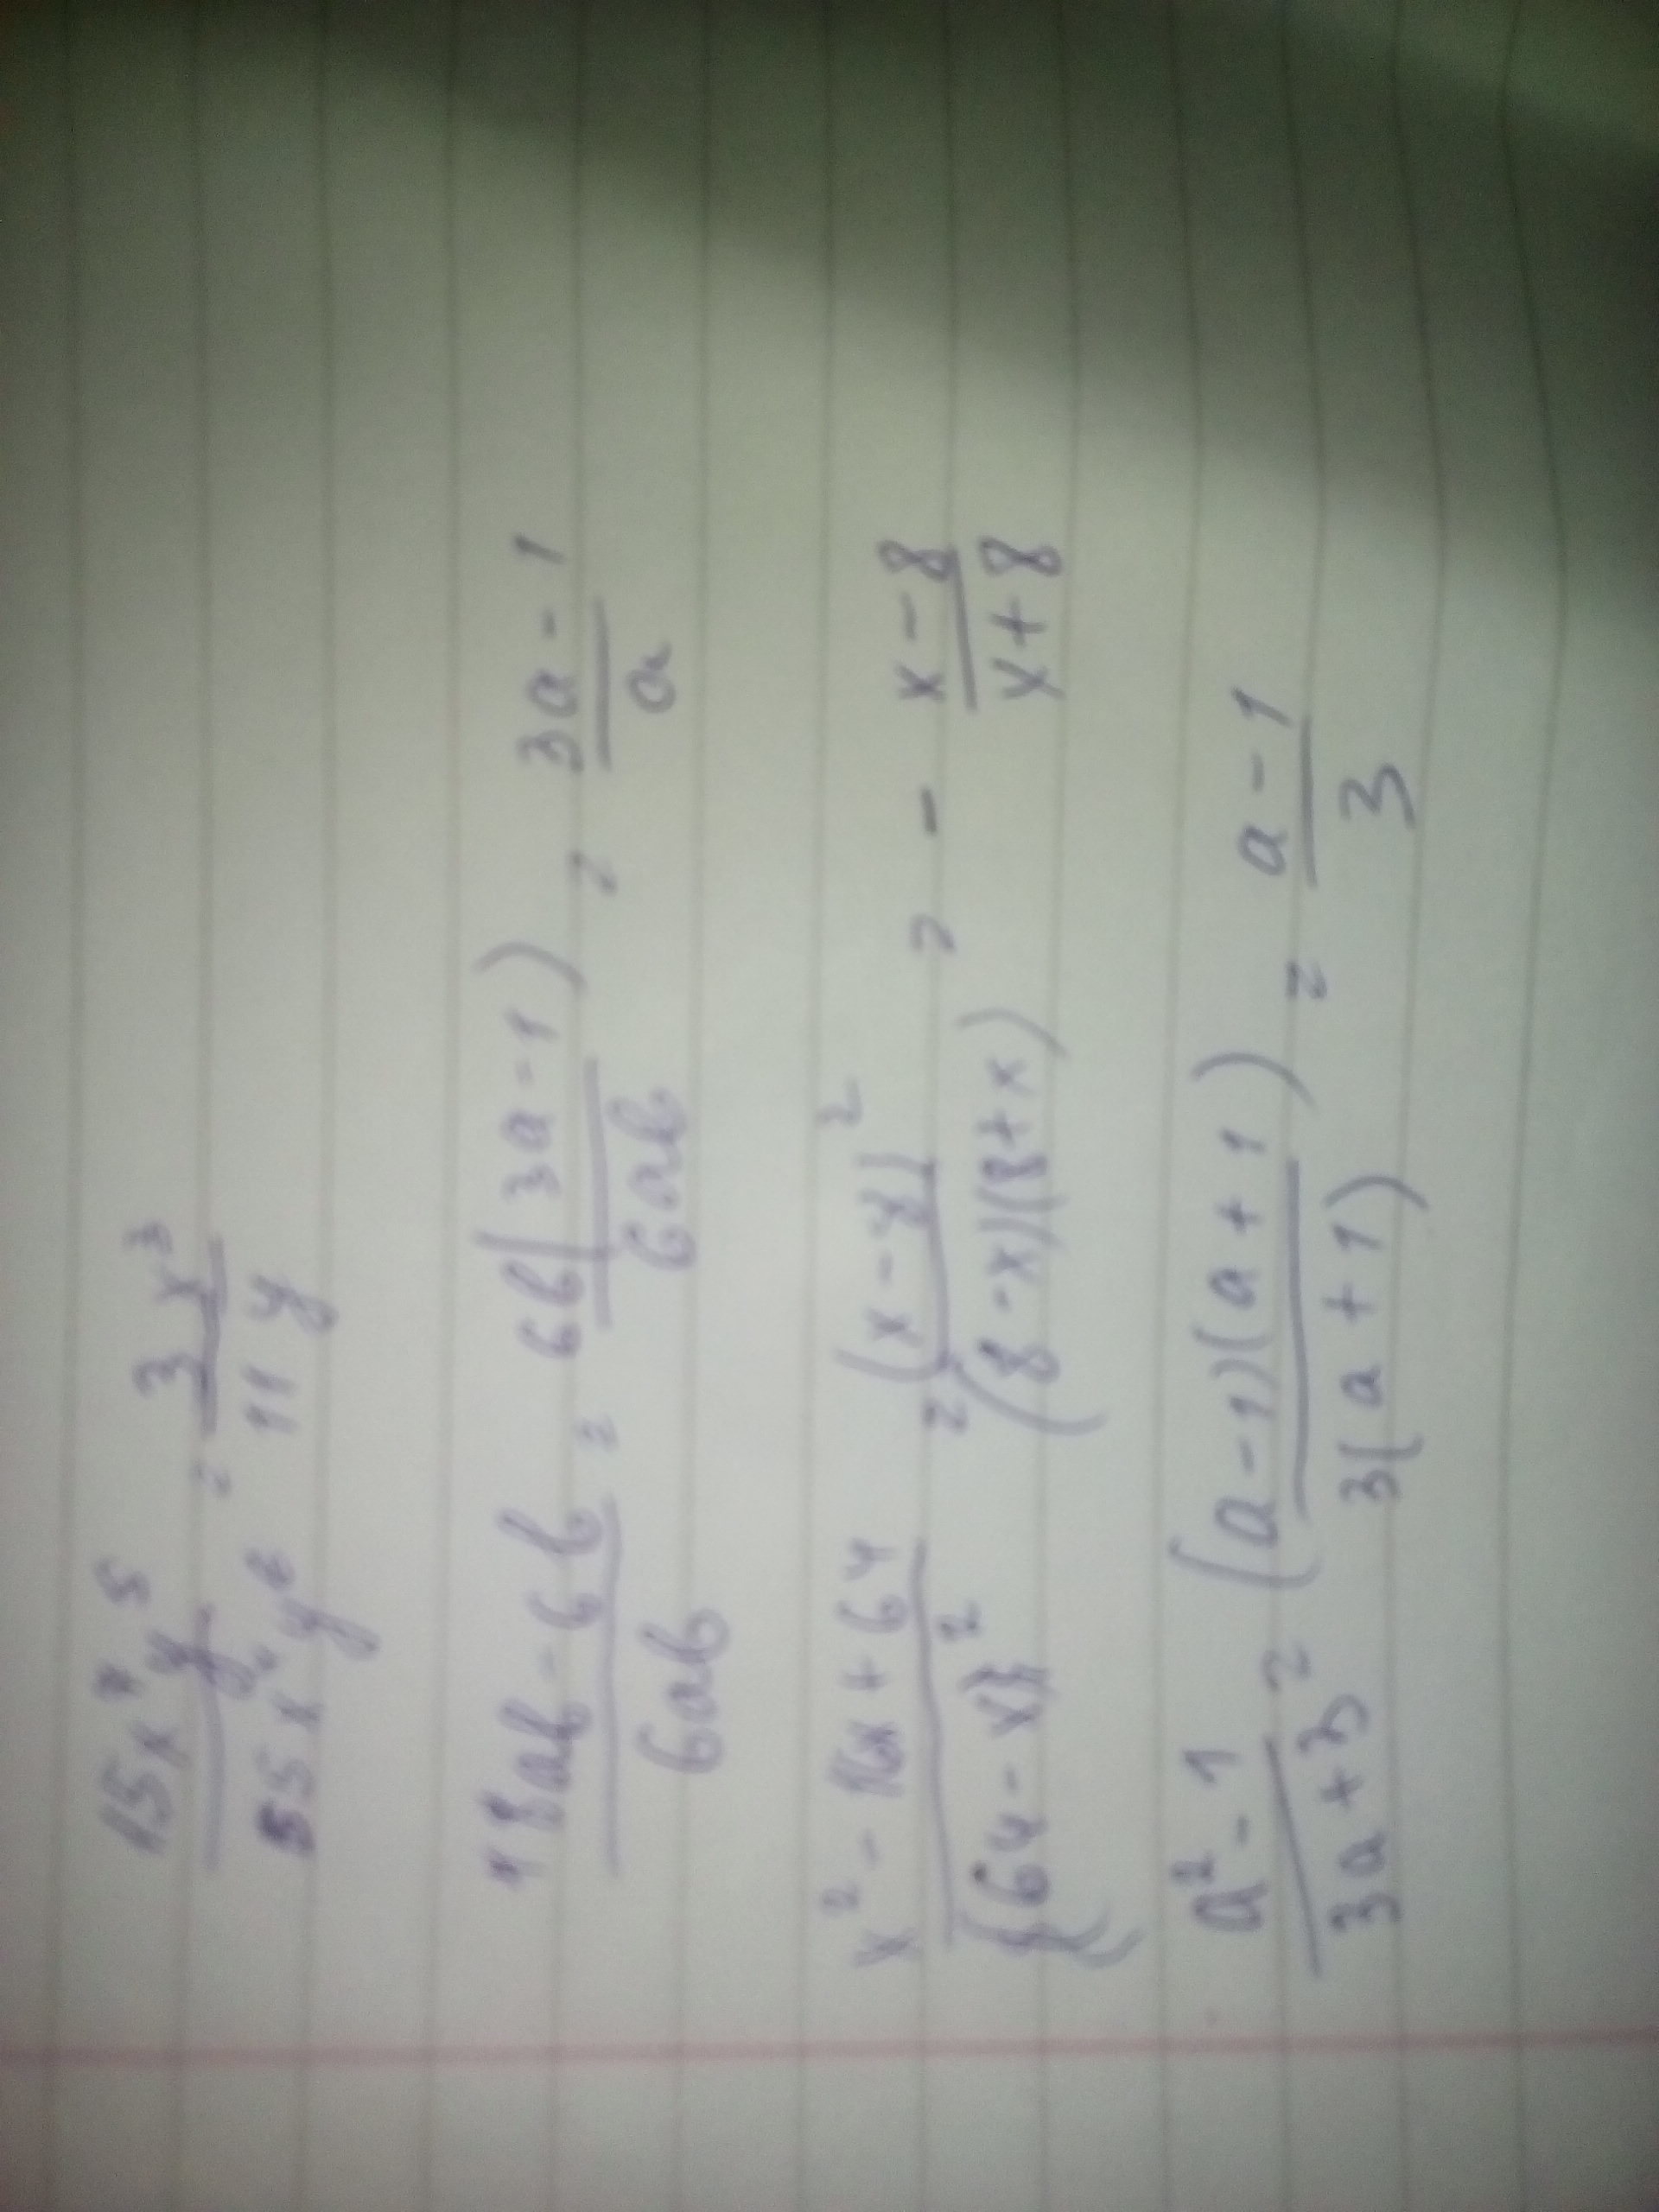 15x⁷y⁵ / 55x⁴y⁶ = 3x³ / 11y
18ab - 6b / 6ab = 6b(3a - 1) / 6ab = 3a - 1 / a
x² - 16x + 64 / (64 - x²) = (x - 8)² / (8 - x)(8 + x) = - x - 8 / x + 8
a² - 1 / 3a + 3 = (a - 1)(a + 1) / 3(a + 1) = a - 1 / 3